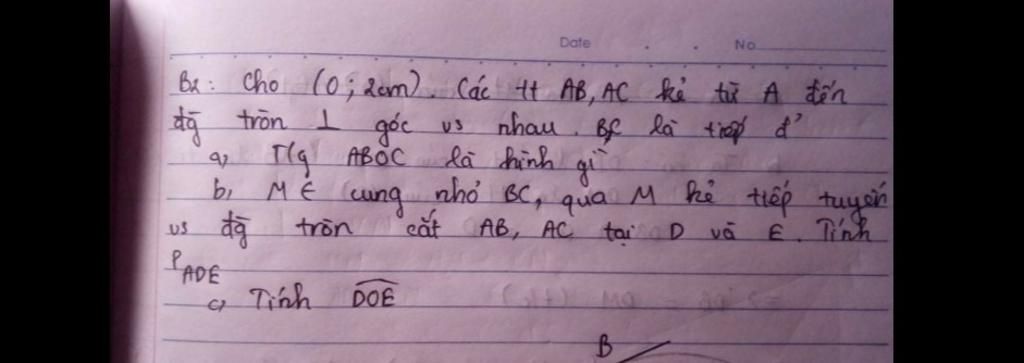 Date . . No
B2: Cho (O; 2cm). Các tt AB, AC kẻ từ A đến
đg̃ tròn ⊥ góc vs nhau. B,C là tiếp đ'
a, T/g ABOC là hình gì
b, M ∈ cung nhỏ BC, qua M kẻ tiếp tuyến
vs đg̃ tròn cắt AB, AC tại D và E. Tính
P ADE
c, Tính DOE
B